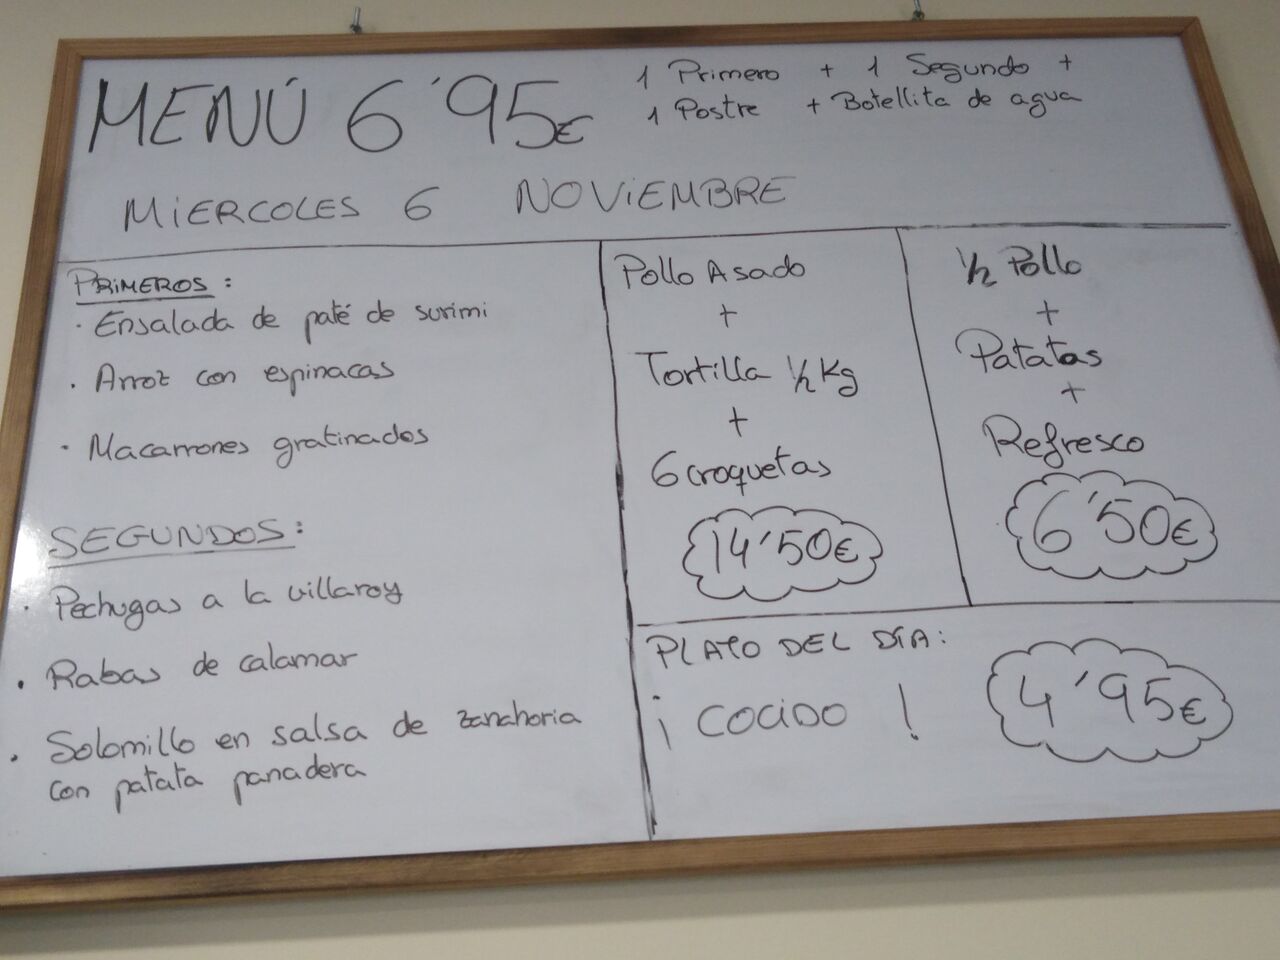 MENÚ 6'95€
1 Primero + 1 Segundo +
1 Postre + Botellita de agua
MIERCOLES 6 NOVIEMBRE
PRIMEROS:
· Ensalada de paté de surimi
· Arroz con espinacas
· Macarrones gratinados
SEGUNDOS:
· Pechugas a la villaroy
· Rabas de calamar
· Solomillo en salsa de zanahoria
con patata panadera
Pollo Asado
+
Tortilla 1/2 Kg
+
6 croquetas
14'50€
1/2 Pollo
+
Patatas
+
Refresco
6'50€
PLATO DEL DÍA:
¡COCIDO!
4'95€